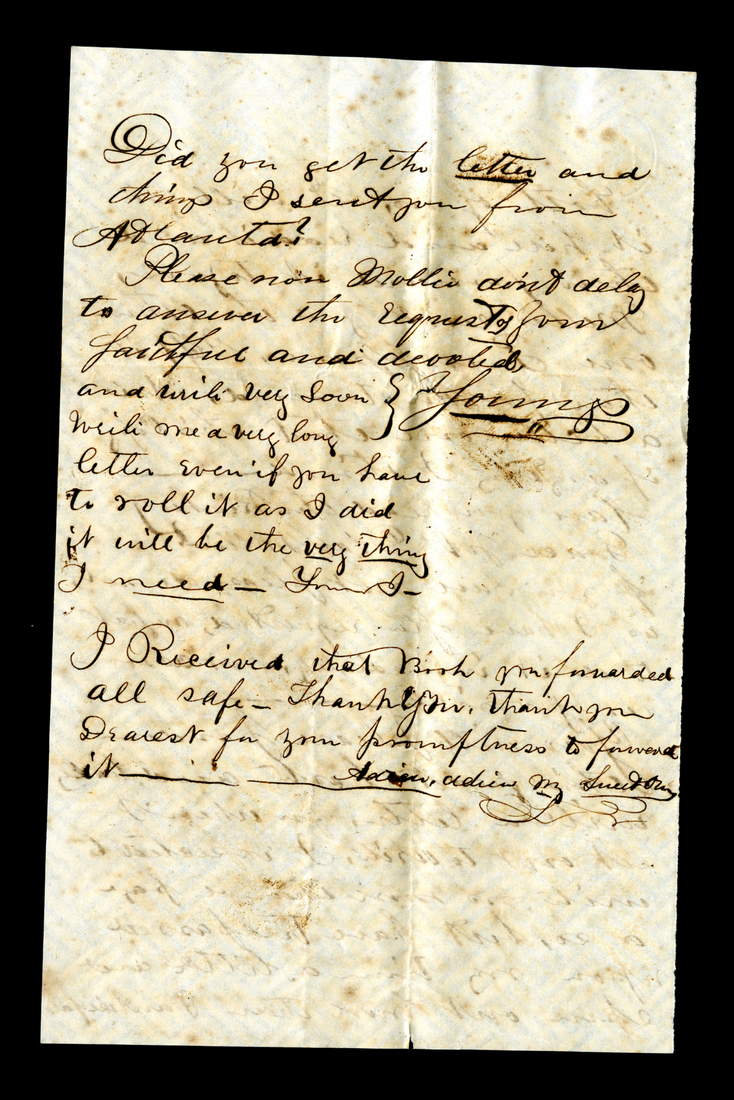 Did you get the letter and
things I sent you from
Atlanta?
Please now Mollie don't delay
to answer the request of your
faithful and devoted
Young
and write very soon
Write me a very long
letter even if you have
to roll it as I did
it will be the very thing
I need — Yours
I Received that Book you forwarded
all safe — Thank you, thank you
Dearest for your promptness to forward
it — Adieu, adieu my Sweet One